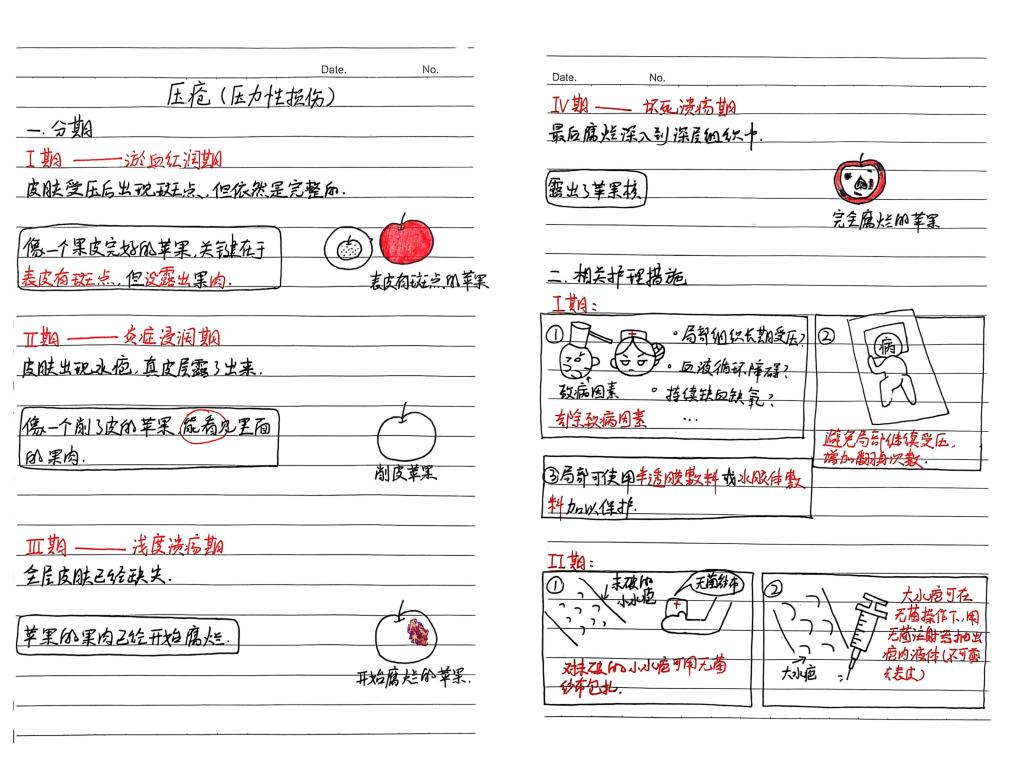 Date. No.
压疮（压力性损伤）
一.分期
I期 —— 淤血红润期
皮肤受压后出现斑点,但依然是完整的.
像一个果皮完好的苹果,关键在于
表皮有斑点,但没露出果肉.
表皮有斑点的苹果
II期 —— 炎症浸润期
皮肤出现水疱,真皮层露了出来.
像一个削了皮的苹果,能看见里面
的果肉.
削皮苹果
III期 —— 浅度溃疡期
全层皮肤已经缺失.
苹果的果肉已经开始腐烂.
开始腐烂的苹果.
Date. No.
IV期 —— 坏死溃疡期
最后腐烂深入到深层组织中.
露出了苹果核
完全腐烂的苹果
二.相关护理措施
I期:
①
局部组织长期受压?
血液循环障碍?
持续缺血缺氧?
...
致病因素
去除致病因素
②
病
避免局部继续受压,
增加翻身次数.
③局部可使用半透膜敷料或水胶体敷
料加以保护.
II期:
①
未破的
小水疱
无菌纱布
对未破的小水疱可用无菌
纱布包扎.
②
大水疱
大水疱可在
无菌操作下,用
无菌注射器抽出
疱内液体(不可剪
去表皮)